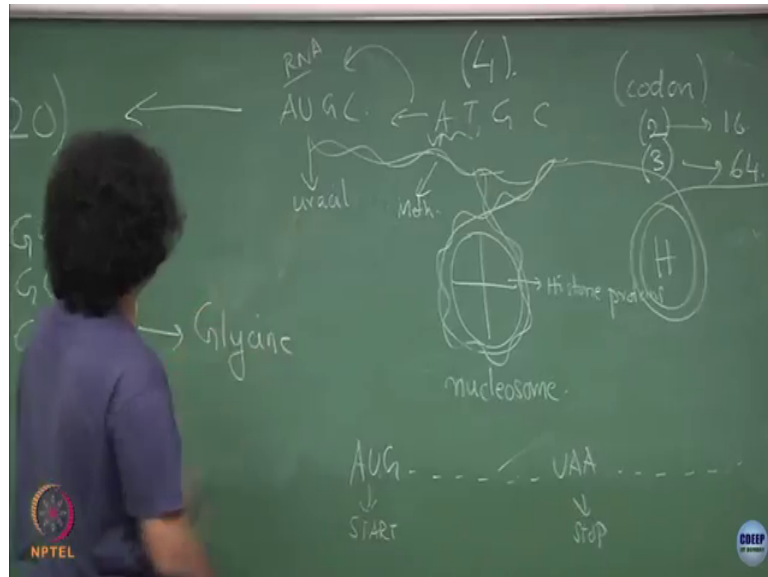 RNA
(4).
(codon)
20)
AUGC. ← A T G C
(2) → 16
(3) → 64.
uracil
Meth.
H
→ Histone proteins
→ Glycine
nucleosome.
AUG. - - - - - UAA - - - - -
START
STOP
NPTEL
CDEEP
IIT BOMBAY